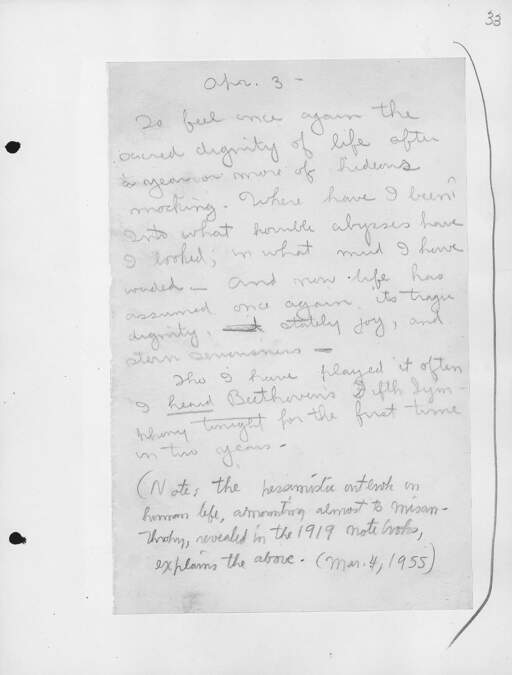 33
Apr. 3 -
To feel once again the
sacred dignity of life after
a year or more of hideous
mocking. Where have I been?
Into what horrible abysses have
I looked; in what mud I have
waded - And now life has
assumed once again its tragic
dignity, stately joy, and
stern seriousness -
Tho I have played it often
I heard Beethoven's Fifth Sym-
phony tonight for the first time
in two years -
(Note; the pessimistic outlook on
human life, amounting almost to misan-
thropy, revealed in the 1919 notebooks,
explains the above. (Mar. 4, 1955)